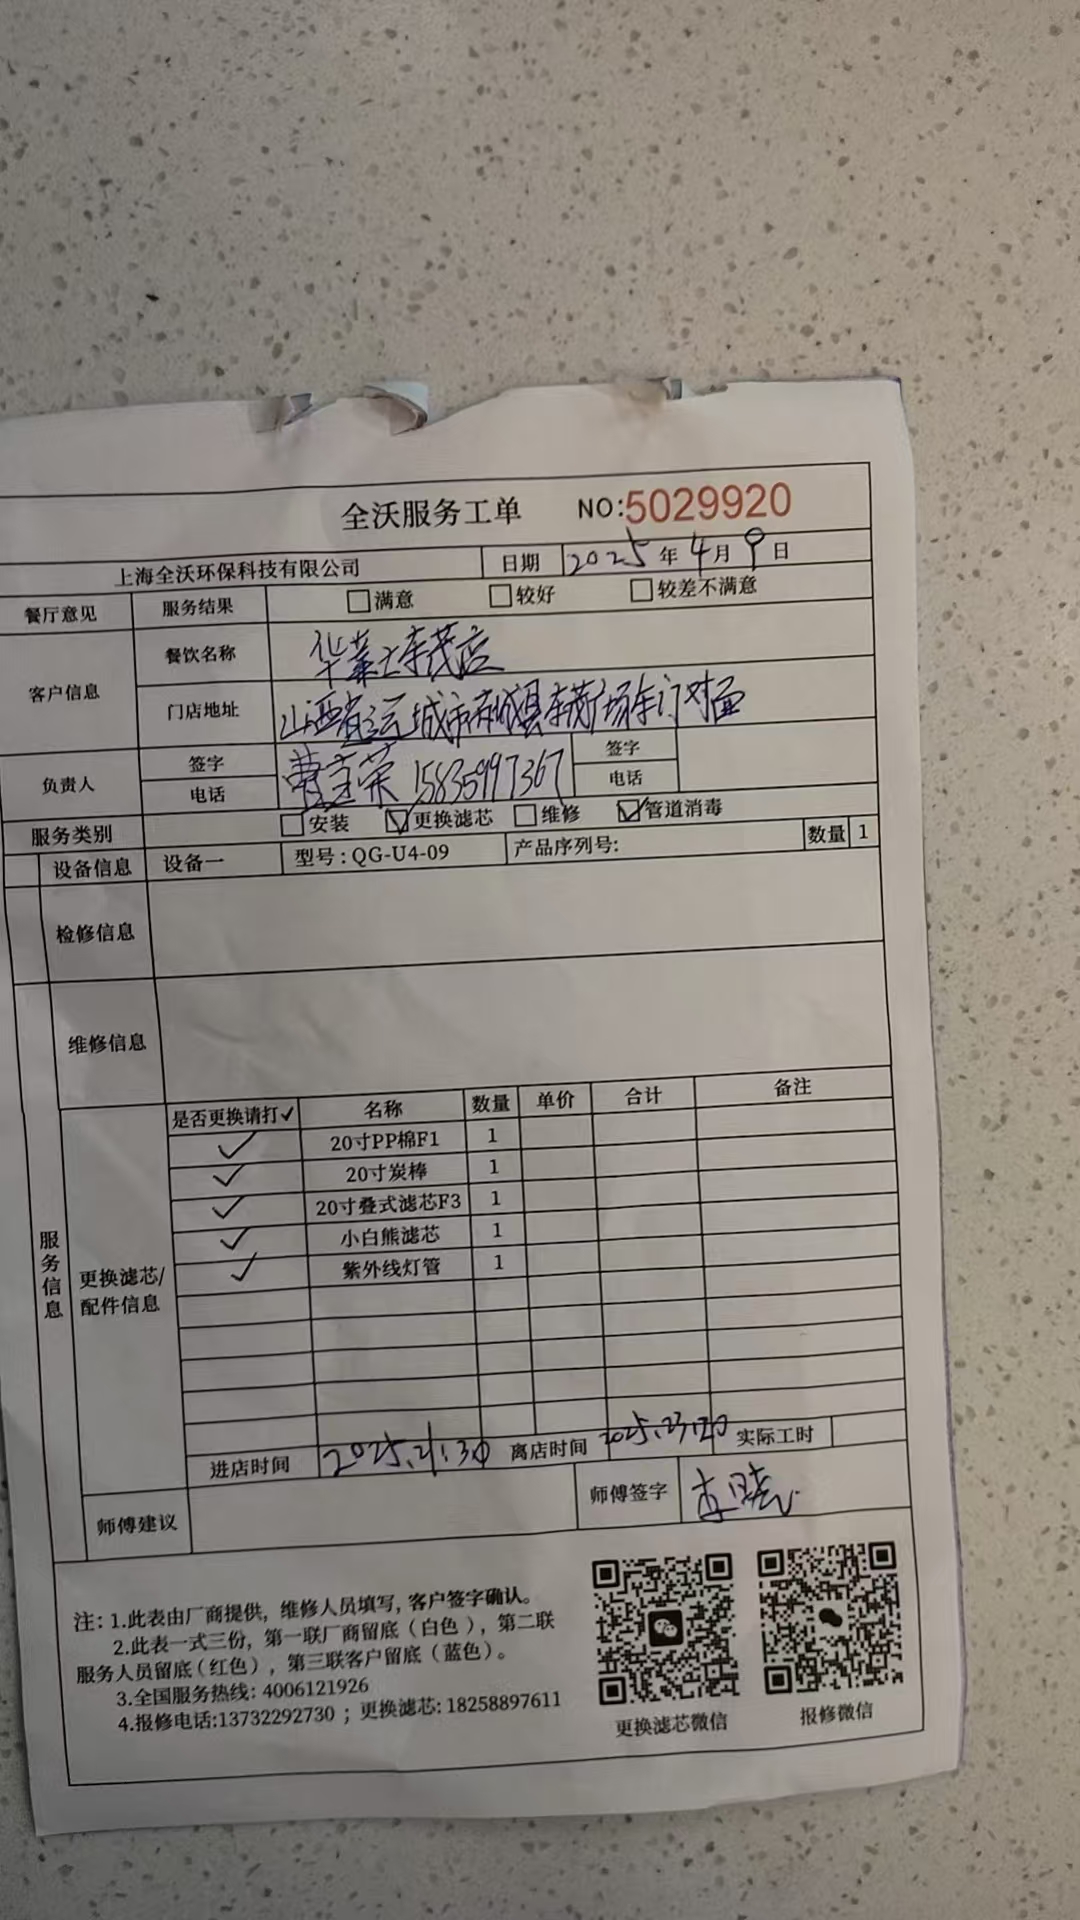 全沃服务工单 NO:5029920
上海全沃环保科技有限公司 日期 2025年4月9日
餐厅意见 服务结果 □满意 □较好 □较差不满意
客户信息 餐饮名称 华莱士东茂店
门店地址 山西省运城市芮城县东茂广场东门对面
负责人 签字 曹 荣 签字
电话 15835997367 电话
服务类别 □安装 ☑更换滤芯 □维修 ☑管道消毒
设备信息 设备一 型号:QG-U4-09 产品序列号: 数量 1
检修信息
维修信息
服务信息
更换滤芯/配件信息
是否更换请打✓ 名称 数量 单价 合计 备注
✓ 20寸PP棉F1 1
✓ 20寸炭棒 1
✓ 20寸叠式滤芯F3 1
✓ 小白熊滤芯 1
✓ 紫外线灯管 1
进店时间 2025.21:30 离店时间 2025.23:20 实际工时
师傅建议 师傅签字 李晓
注: 1.此表由厂商提供, 维修人员填写, 客户签字确认。
2.此表一式三份, 第一联厂商留底(白色), 第二联
服务人员留底(红色), 第三联客户留底(蓝色)。
3.全国服务热线: 4006121926
4.报修电话:13732292730 ; 更换滤芯: 18258897611
更换滤芯微信 报修微信